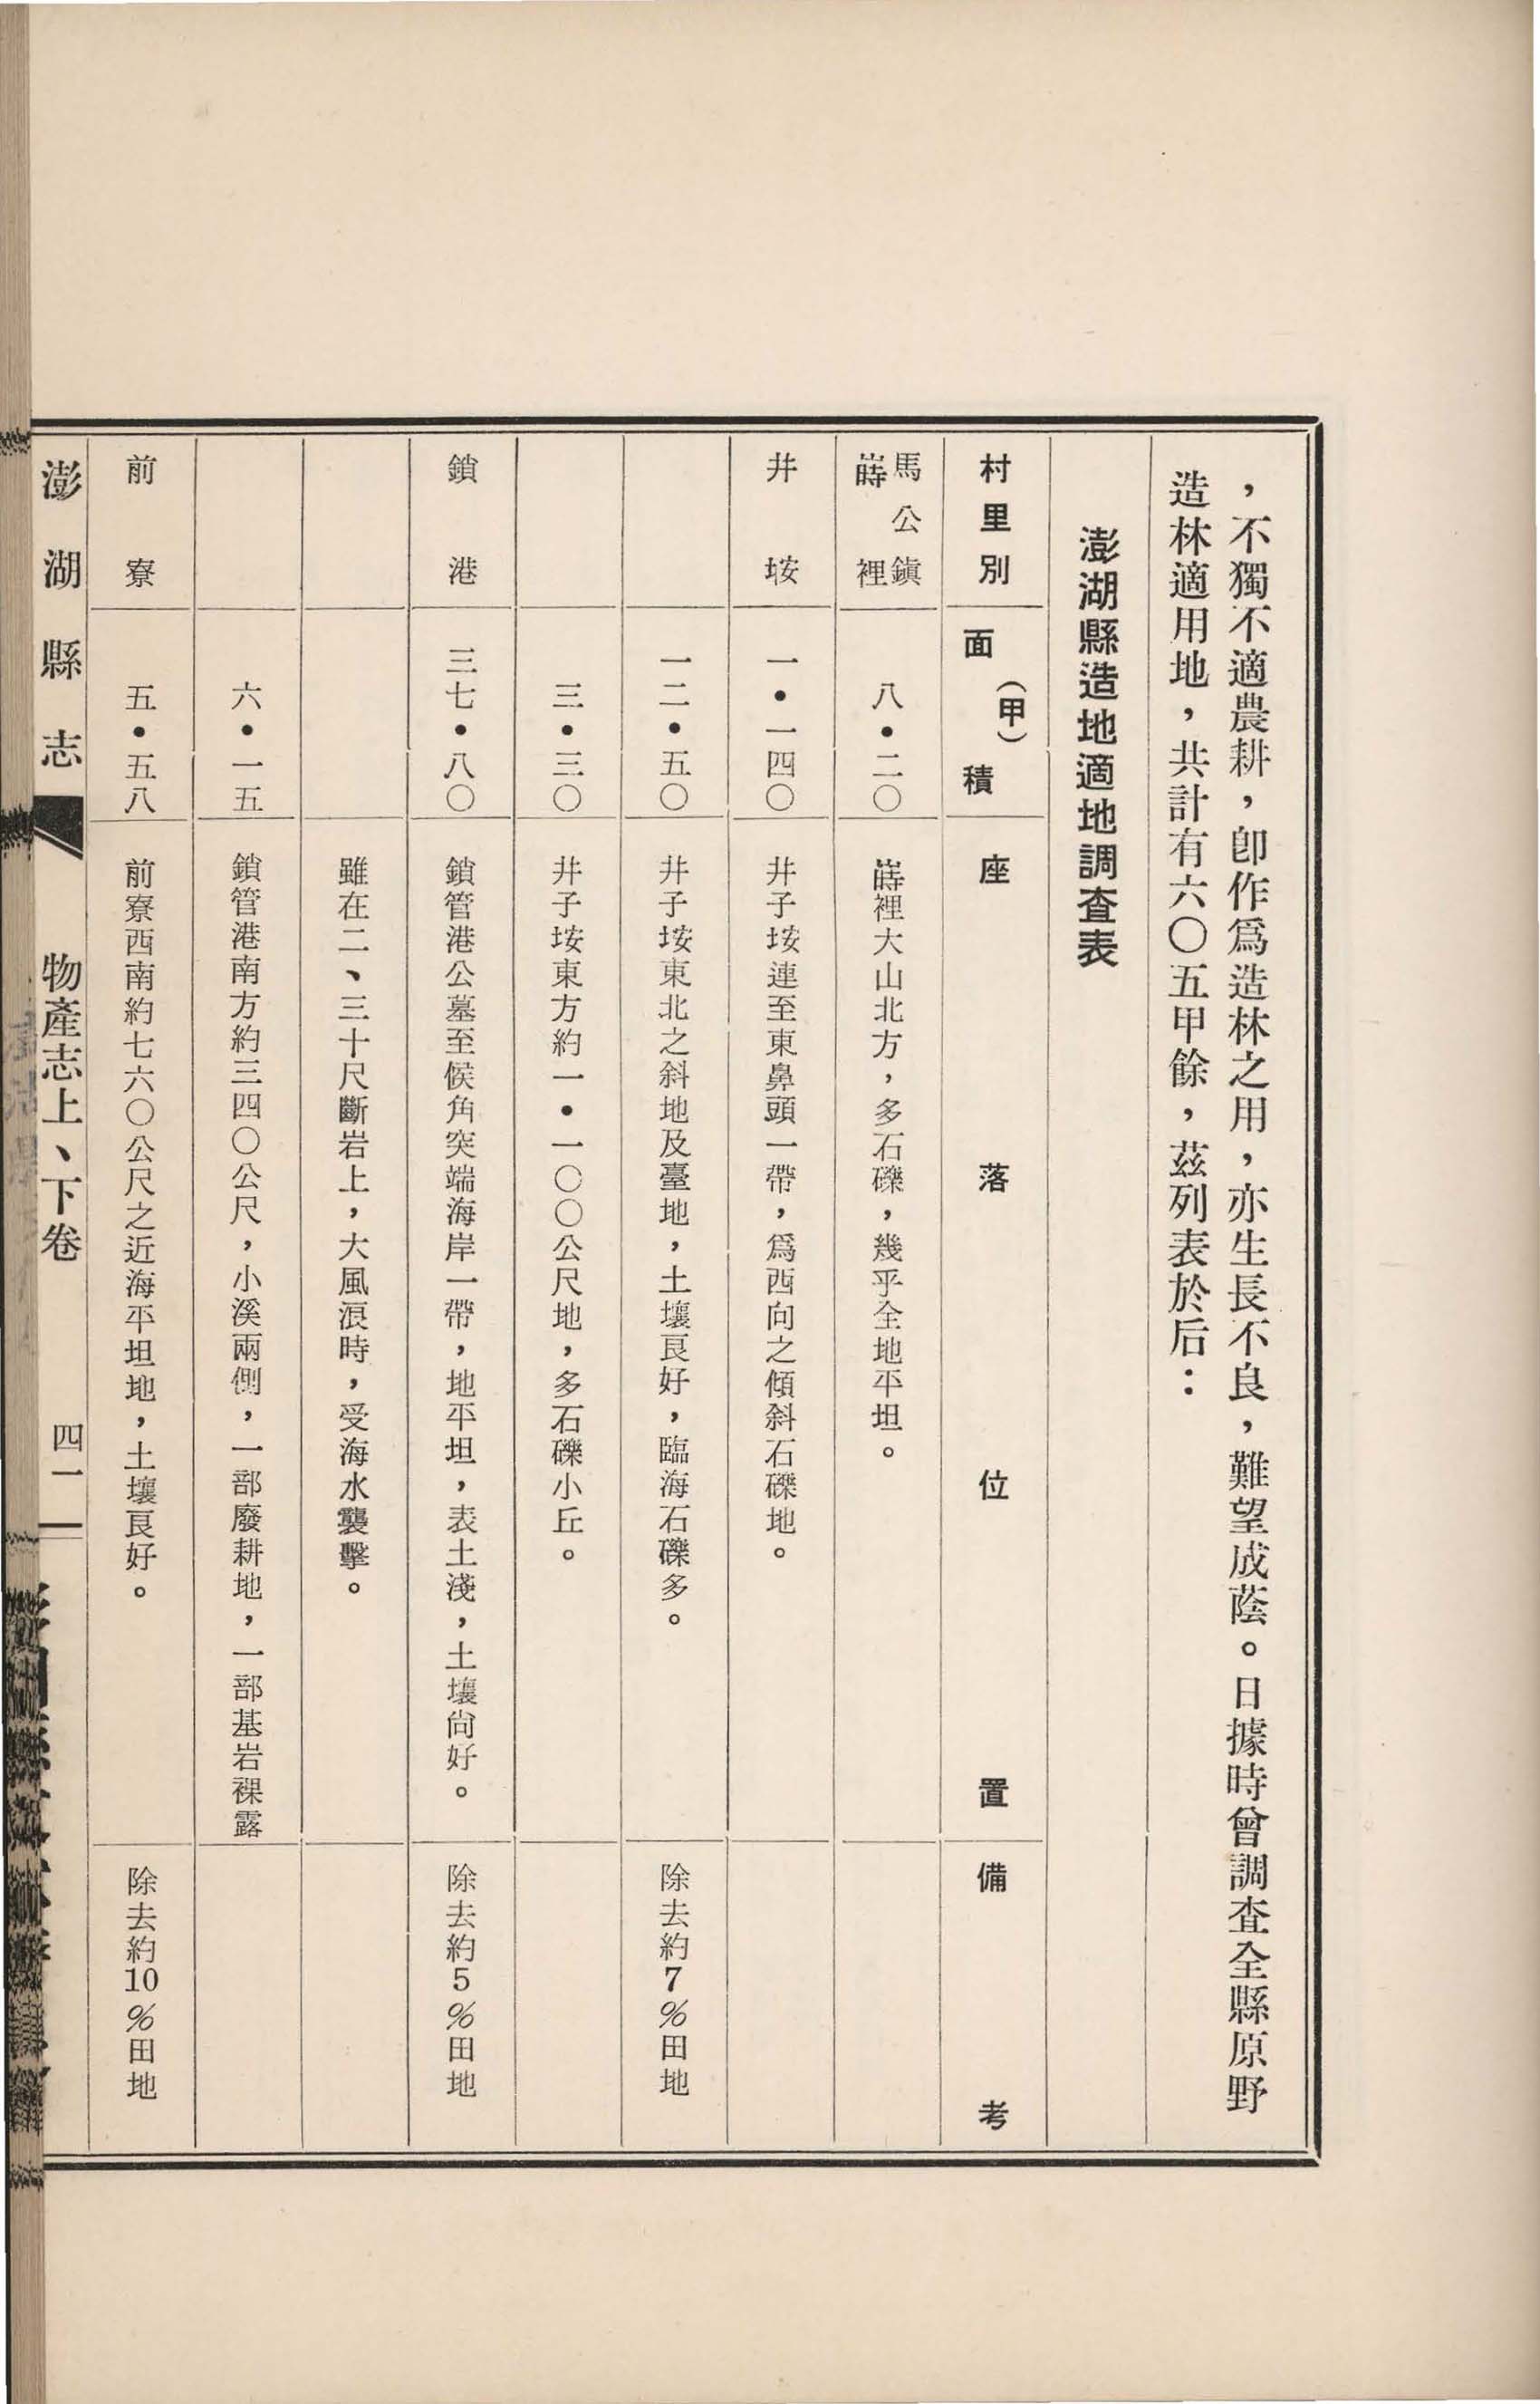 ，不獨不適農耕，卽作爲造林之用，亦生長不良，難望成蔭。日據時曾調查全縣原野
造林適用地，共計有六〇五甲餘，茲列表於后：
澎湖縣造地適地調查表
村里別 面積（甲） 座落位置 備考
馬公鎭
蒔裡 八・二〇 蒔裡大山北方，多石礫，幾乎全地平坦。
井垵 一・一四〇 井子垵連至東鼻頭一帶，爲西向之傾斜石礫地。
一二・五〇 井子垵東北之斜地及臺地，土壤良好，臨海石礫多。 除去約7%田地
三・三〇 井子垵東方約一・一〇〇公尺地，多石礫小丘。
鎖港 三七・八〇 鎖管港公墓至候角突端海岸一帶，地平坦，表土淺，土壤尙好。 除去約5%田地
雖在二、三十尺斷岩上，大風浪時，受海水襲擊。
六・一五 鎖管港南方約三四〇公尺，小溪兩側，一部廢耕地，一部基岩裸露
前寮 五・五八 前寮西南約七六〇公尺之近海平坦地，土壤良好。 除去約10%田地
澎湖縣志 物產志上、下卷 四一